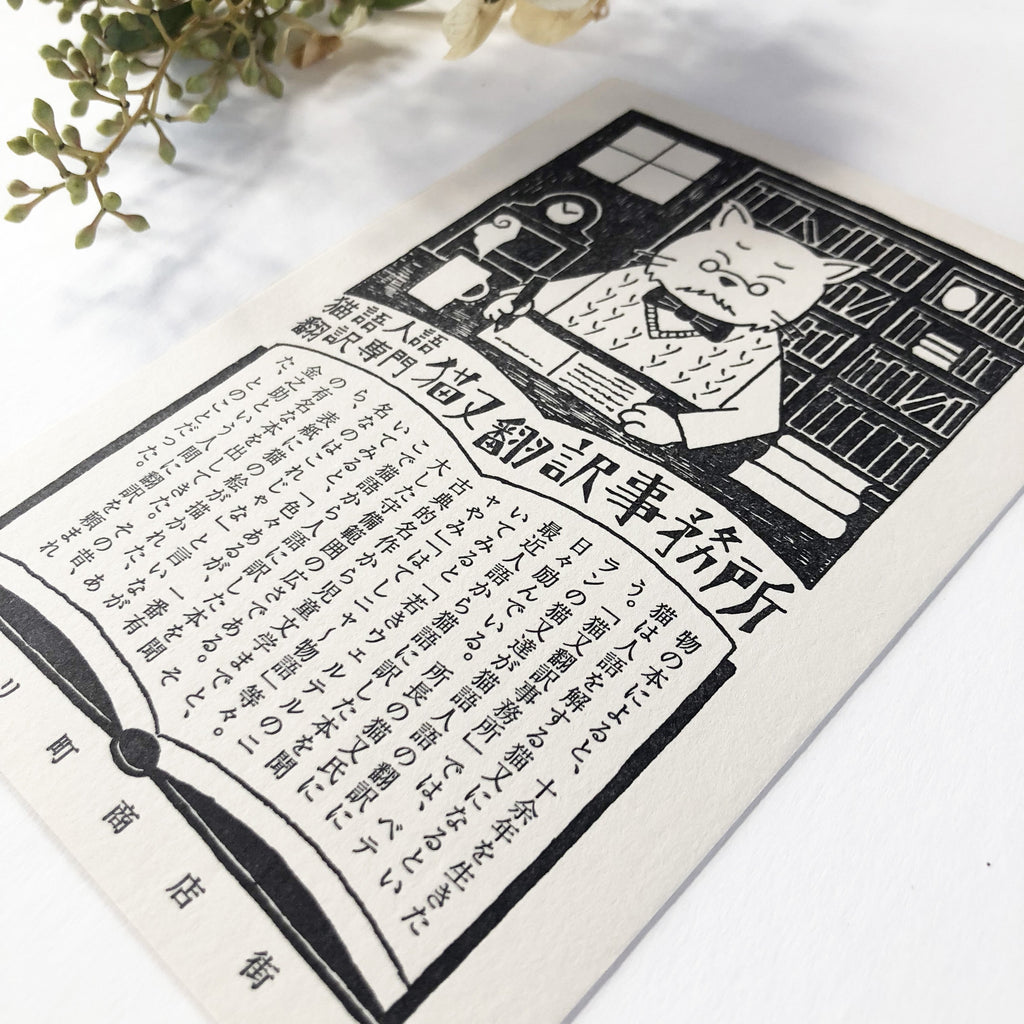 猫語人語
翻訳専門
猫又翻訳事務所
物の本によると、十余年を生きた
猫は人語を解する猫又になるとい
う。「猫又翻訳事務所」では、ベテ
ランの猫又達が猫語人語の翻訳に
日々励んでいる。所長の猫又氏に
最近人語から猫語に訳した本を聞
いてみると「若きウェルテルのニ
ャやみ」「はてしニャ〜物語」等々。
古典的名作から児童文学まで、
大した守備範囲の広さである。そ
こで猫語から人語に訳した本を聞
いてみると「色々あるが、一番有
名なのはこれじゃな」と言いなが
ら、表紙に猫の絵が描かれた、あ
の有名な本を出してきた。その昔、
金之助という人間に翻訳を頼まれ
た、とのことだった。
リ町商店街